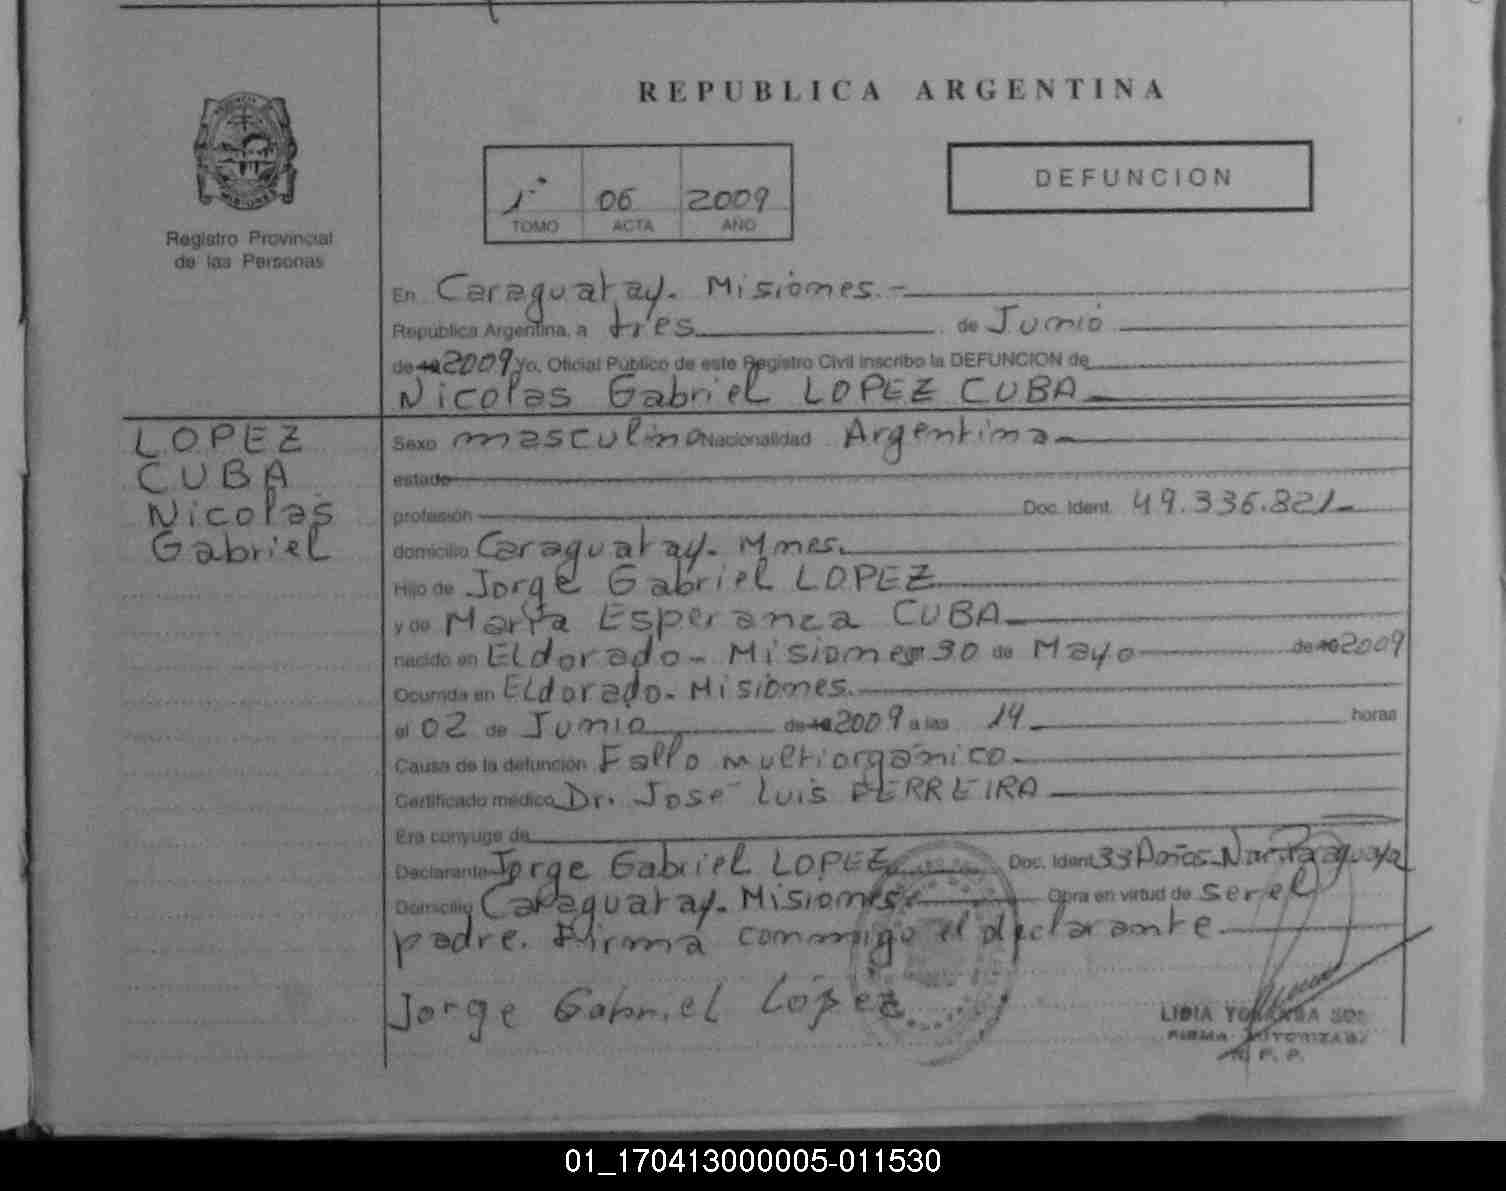 REPUBLICA ARGENTINA
1° 06 2009
TOMO ACTA AÑO
DEFUNCION
Registro Provincial
de las Personas
En Caraguatay. Misiones.-
República Argentina, a tres de Junio
de 19 2009 Yo, Oficial Público de este Registro Civil inscribo la DEFUNCION de
Nicolas Gabriel LOPEZ CUBA
LOPEZ
CUBA
Nicolas
Gabriel
Sexo masculino Nacionalidad Argentina
estado
profesión Doc. Ident. 49.336.821
domicilio Caraguatay. Mnes.
Hijo de Jorge Gabriel LOPEZ
y de María Esperanza CUBA
nacido en Eldorado - Misiones 30 de Mayo de 19 2009
Ocurrida en Eldorado - Misiones.
el 02 de Junio de 19 2009 a las 14 horas
Causa de la defunción Fallo multiorgánico
Certificado médico Dr. José Luis FERREIRA
Era cónyuge de
Declarante Jorge Gabriel LOPEZ Doc. Ident. 33 Años Nac. Paraguaya
Domicilio Caraguatay. Misiones. Obra en virtud de ser el
padre. Firma conmigo el declarante
Jorge Gabriel López
LIDIA YOLANDA
FIRMA AUTORIZADA
R. P. P.
01_170413000005-011530